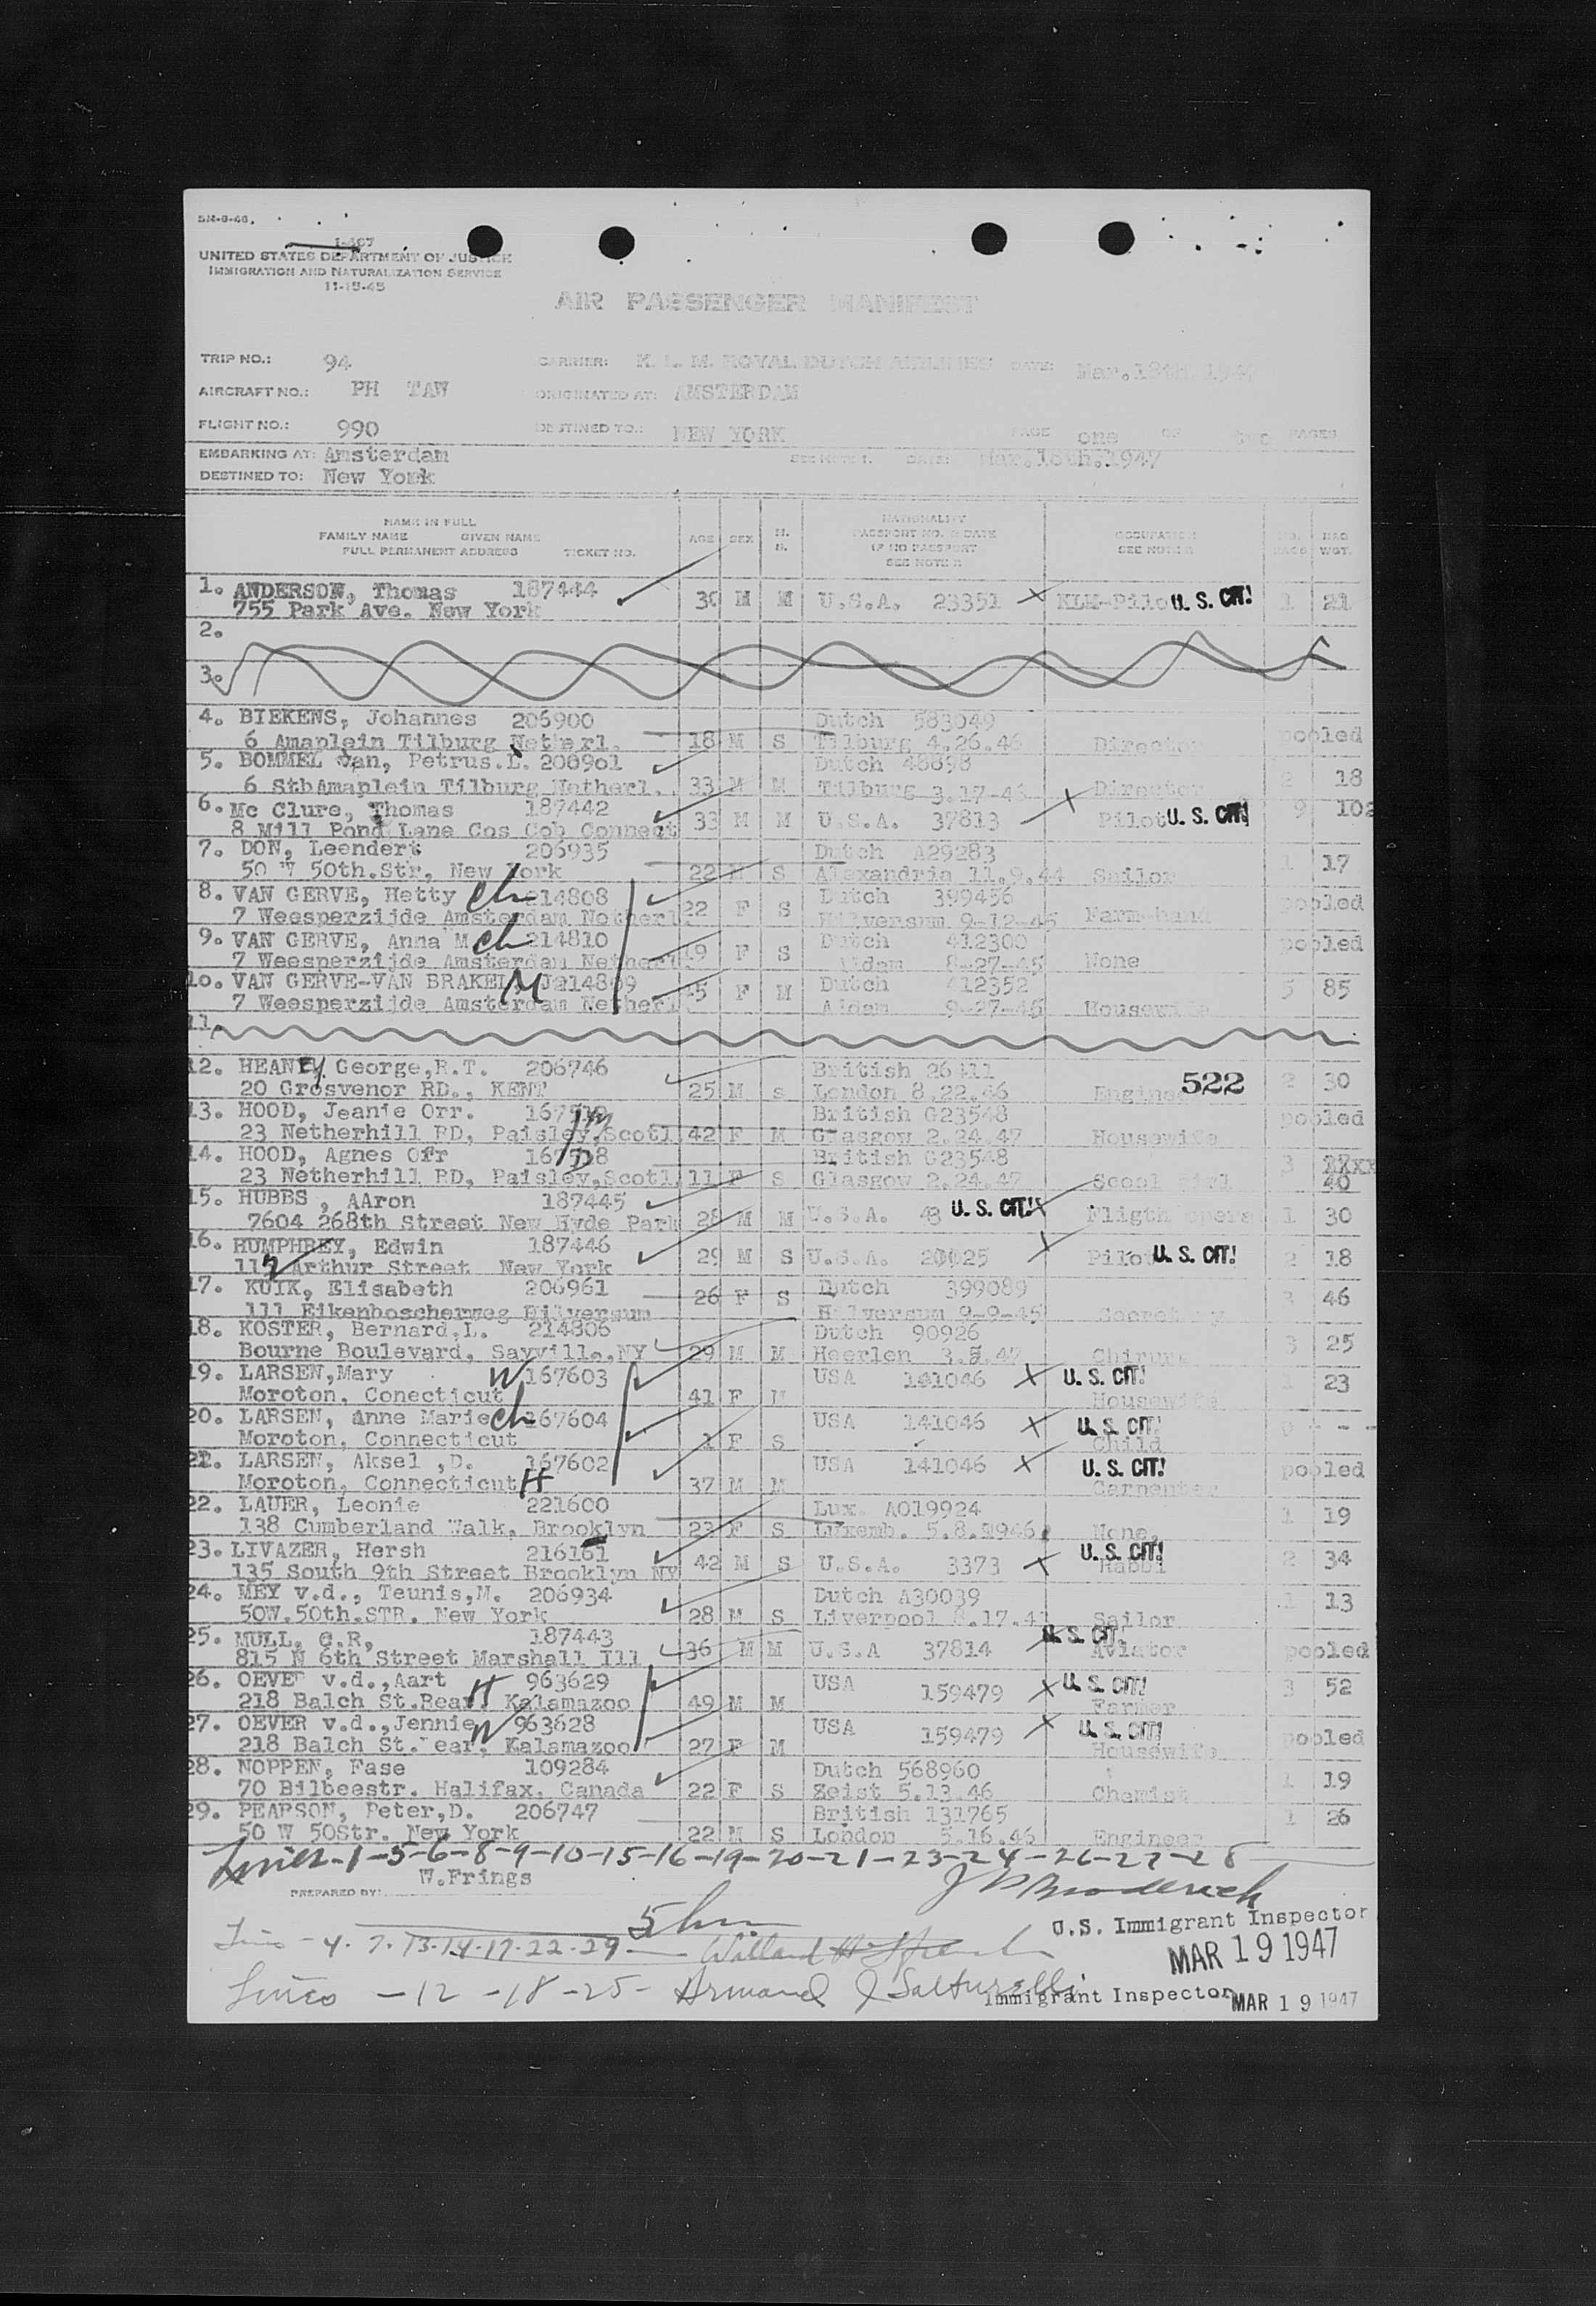 I-467
UNITED STATES DEPARTMENT OF JUSTICE
IMMIGRATION AND NATURALIZATION SERVICE
11-15-45
AIR PASSENGER MANIFEST
TRIP NO.: 94 CARRIER: K. L. M. ROYAL DUTCH AIRLINES DATE: Mar.18th. 1947
AIRCRAFT NO.: PH TAW ORIGINATED AT: AMSTERDAM
FLIGHT NO.: 990 DESTINED TO.: NEW YORK PAGE one OF two PAGES
EMBARKING AT: Amsterdam SEE NOTE 1. DATE: Mar.18th.1947
DESTINED TO: New York
NAME IN FULL
FAMILY NAME GIVEN NAME
FULL PERMANENT ADDRESS TICKET NO. AGE SEX M. S. NATIONALITY PASSPORT NO. & DATE IF NO PASSPORT SEE NOTE II OCCUPATION SEE NOTE II NO. BAGG BAG WGT.
1. ANDERSON, Thomas 187444
755 Park Ave. New York 30 M M U.S.A. 23351 KLM-Pilot U. S. CIT! 1 21
2.
3.
4. BIEKENS, Johannes 206900 Dutch 583049
6 Amaplein Tilburg Netherl. 18 M S Tilburg 4.26.46 Director pooled
5. BOMMEL van, Petrus.L. 206901 Dutch 48898
6 StbAmaplein Tilburg Netherl. 33 M M Tilburg 3.17-46 Director 2 18
6. Mc Clure, Thomas 187442
8 Mill Pond Lane Cos Cob Connect 33 M M U.S.A. 37813 Pilot U. S. CIT! 9 102
7. DON, Leendert 206935 Dutch A29283
50 W 50th.Str, New York 22 M S Alexandria 11.9.44 Sailor 1 17
8. VAN GERVE, Hetty ch 214808 Dutch 399456
7 Weesperzijde Amsterdam Netherl. 22 F S Hilversum 9-12-45 Farm-hand pooled
9. VAN GERVE, Anna M ch 214810 Dutch 412300
7 Weesperzijde Amsterdam Netherl. 19 F S A'dam 8-27-45 None pooled
10. VAN GERVE-VAN BRAKEL, M J 214809 Dutch 412352
7 Weesperzijde Amsterdam Netherl. 45 F M A'dam 9-27-45 Housewife 5 85
11.
12. HEANEY George,R.T. 206746 British 26411
20 Grosvenor RD., KENT 25 M s London 8.22.46 Engineer 522 2 30
13. HOOD, Jeanie Orr. M British G23548
23 Netherhill RD, Paisley,Scotl 42 F M Glasgow 2.24.47 Housewife pooled
14. HOOD, Agnes Orr D British G23548
23 Netherhill RD, Paisley,Scotl 11 F S Glasgow 2.24.47 Scool girl 3 XXXX 40
15. HUBBS , AAron 187445
7604 268th Street New Hyde Park 28 M M U.S.A. 48 U. S. CIT! Fligth opera 1 30
16. HUMPHREY, Edwin 187446
Arthur Street New York 29 M S U.S.A. 20025 Pilot U. S. CIT! 2 18
17. KUIK, Elisabeth 206961 Dutch 399089
111 Eikenboscherweg Hilversum 26 F S Hilversum 9-9-45 Secretary 3 46
18. KOSTER, Bernard,L. 214806 Dutch 90926
Bourne Boulevard, Sayville,NY 29 M M Heerlen 3.5.47 3 25
19. LARSEN,Mary W 167603 USA 141046 U. S. CIT!
Moroton, Conecticut 41 F M Housewife 1 23
20. LARSEN, Anne Marie ch 167604 USA 141046 U. S. CIT!
Moroton, Connecticut 1 F S Child 0 - -
21. LARSEN, Aksel ,D. 167602 USA 141046 U. S. CIT!
Moroton, Connecticut H 37 M M Carpenter pooled
22. LAUER, Leonie 221600 Lux. A019924
138 Cumberland Walk, Brooklyn 23 F S Luxemb. 5.8.1946. None. 1 19
23. LIVAZER, Hersh 216161 U. S. CIT!
135 South 9th Street Brooklyn NY 42 M S U.S.A. 3373 Rabbi 2 34
24. MEY v.d., Teunis,M. 206934 Dutch A30039
50W.50th.STR. New York 28 M S Liverpool 8.17.43 Sailor 1 13
25. MULL, C.R, 187443 U. S. CIT.
815 N 6th Street Marshall Ill 36 M M U.S.A 37814 Aviator pooled
26. OEVER v.d.,Aart 963629 USA 159479 U. S. CIT!
218 Balch St.Rear, H Kalamazoo 49 M M Farmer 3 52
27. OEVER v.d.,Jennie W 963628 USA 159479 U. S. CIT!
218 Balch St.Rear, Kalamazoo 27 F M Housewife pooled
28. NOPPEN, Fase 109284 Dutch 568960
70 Bilbeestr. Halifax, Canada 22 F S Zeist 5.13.46 Chemist 1 19
29. PEARSON, Peter,D. 206747 British 131765
50 W 50Str. New York 22 M S London 5.16.46 Engineer 1 26
Lines-1-5-6-8-9-10-15-16-19-20-21-23-24-26-27-28
W.Frings J P Broderick
PREPARED BY:
U.S. Immigrant Inspector
Lines - 4. 7. 13.14.17.22.29
MAR 19 1947
Lines - 12 - 18 - 25 - Armand J Salturelli
Immigrant Inspector MAR 19 1947